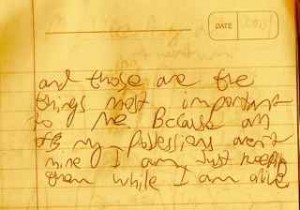 DATE
and those are the
things most important
to me. Because all
of my possessions aren't
mine I am Just keeping
them while I am alive